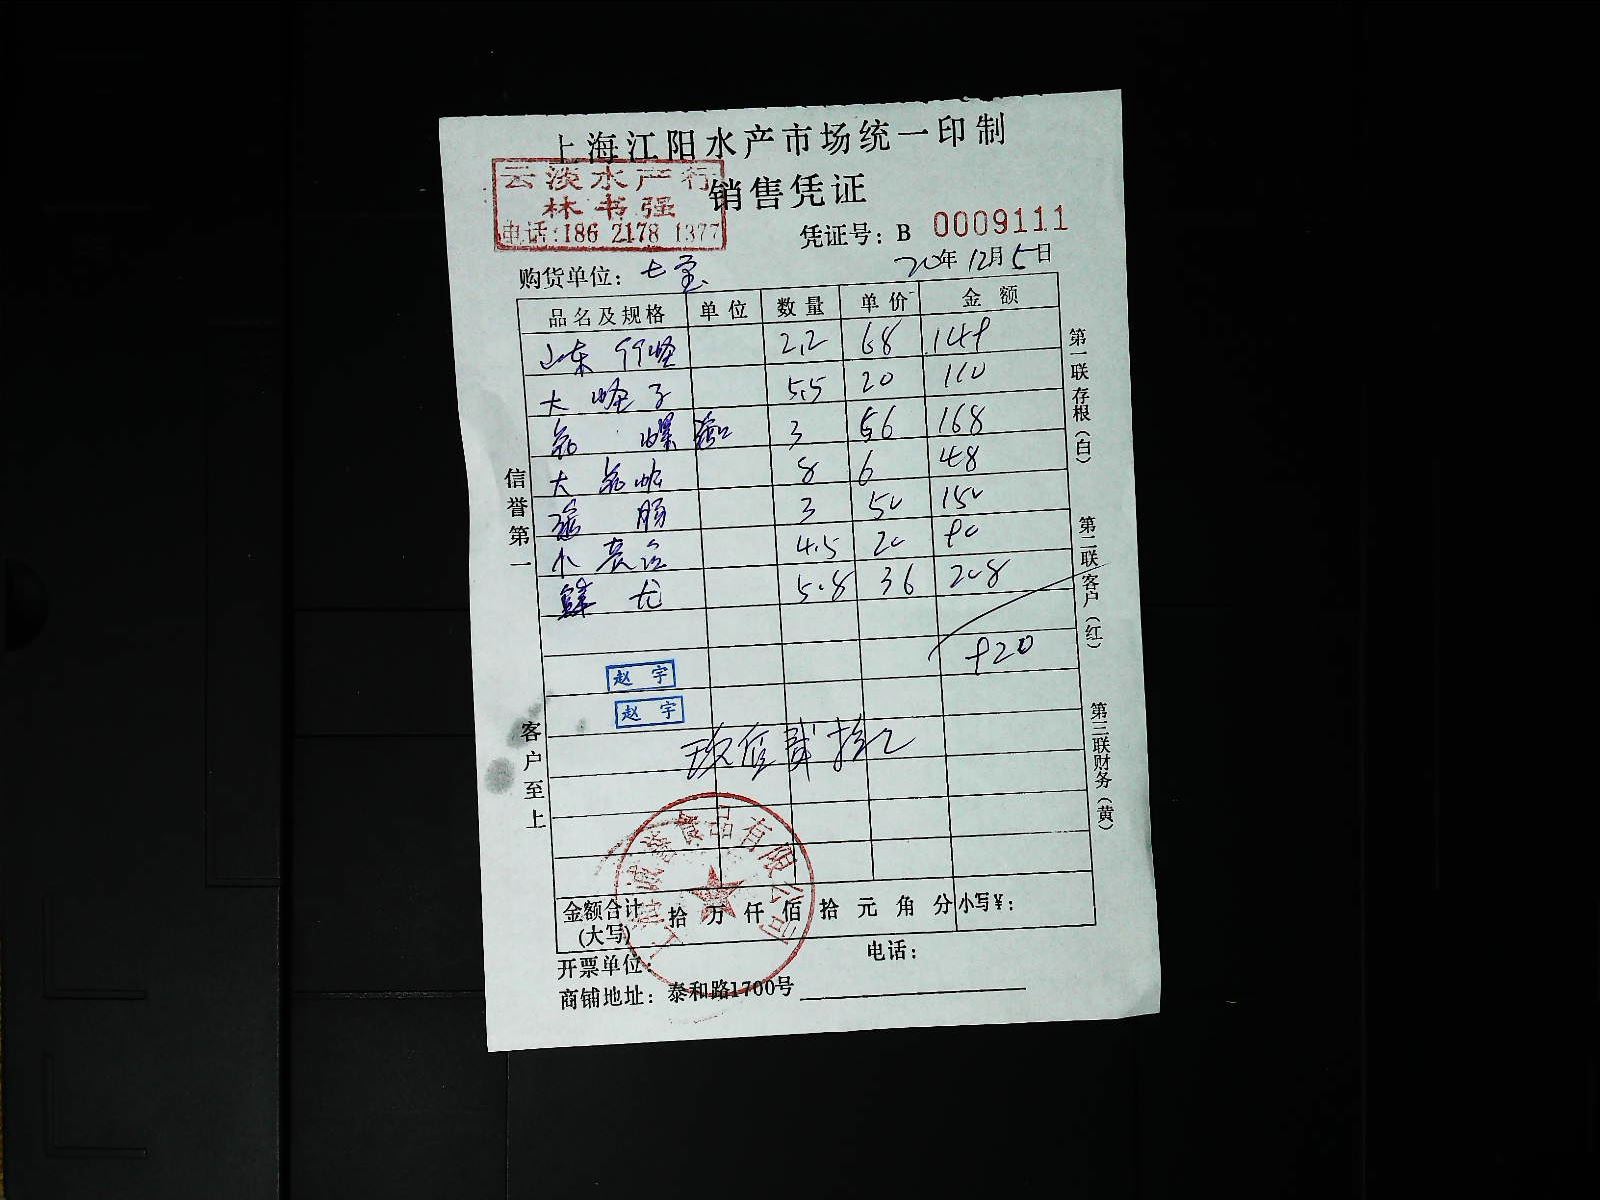 上海江阳水产市场统一印制
云淡水产行
林书强
电话:186 2178 1377
销售凭证
凭证号: B 0009111
购货单位: 七宝
20年12月5日
品名及规格 单位 数量 单价 金额
山东 2.2 68 149
大蛏子 5.5 20 110
螺 3 56 168
大 8 6 48
肠 3 50 150
小 4.5 20 90
5.8 36 208
920
赵宇
赵宇
玖佰贰拾元
食品有限公司
金额合计(大写) 拾 万 仟 佰 拾 元 角 分 小写¥:
开票单位:
电话:
商铺地址: 泰和路1700号
信誉第一
客户至上
第一联存根(白)
第二联客户(红)
第三联财务(黄)